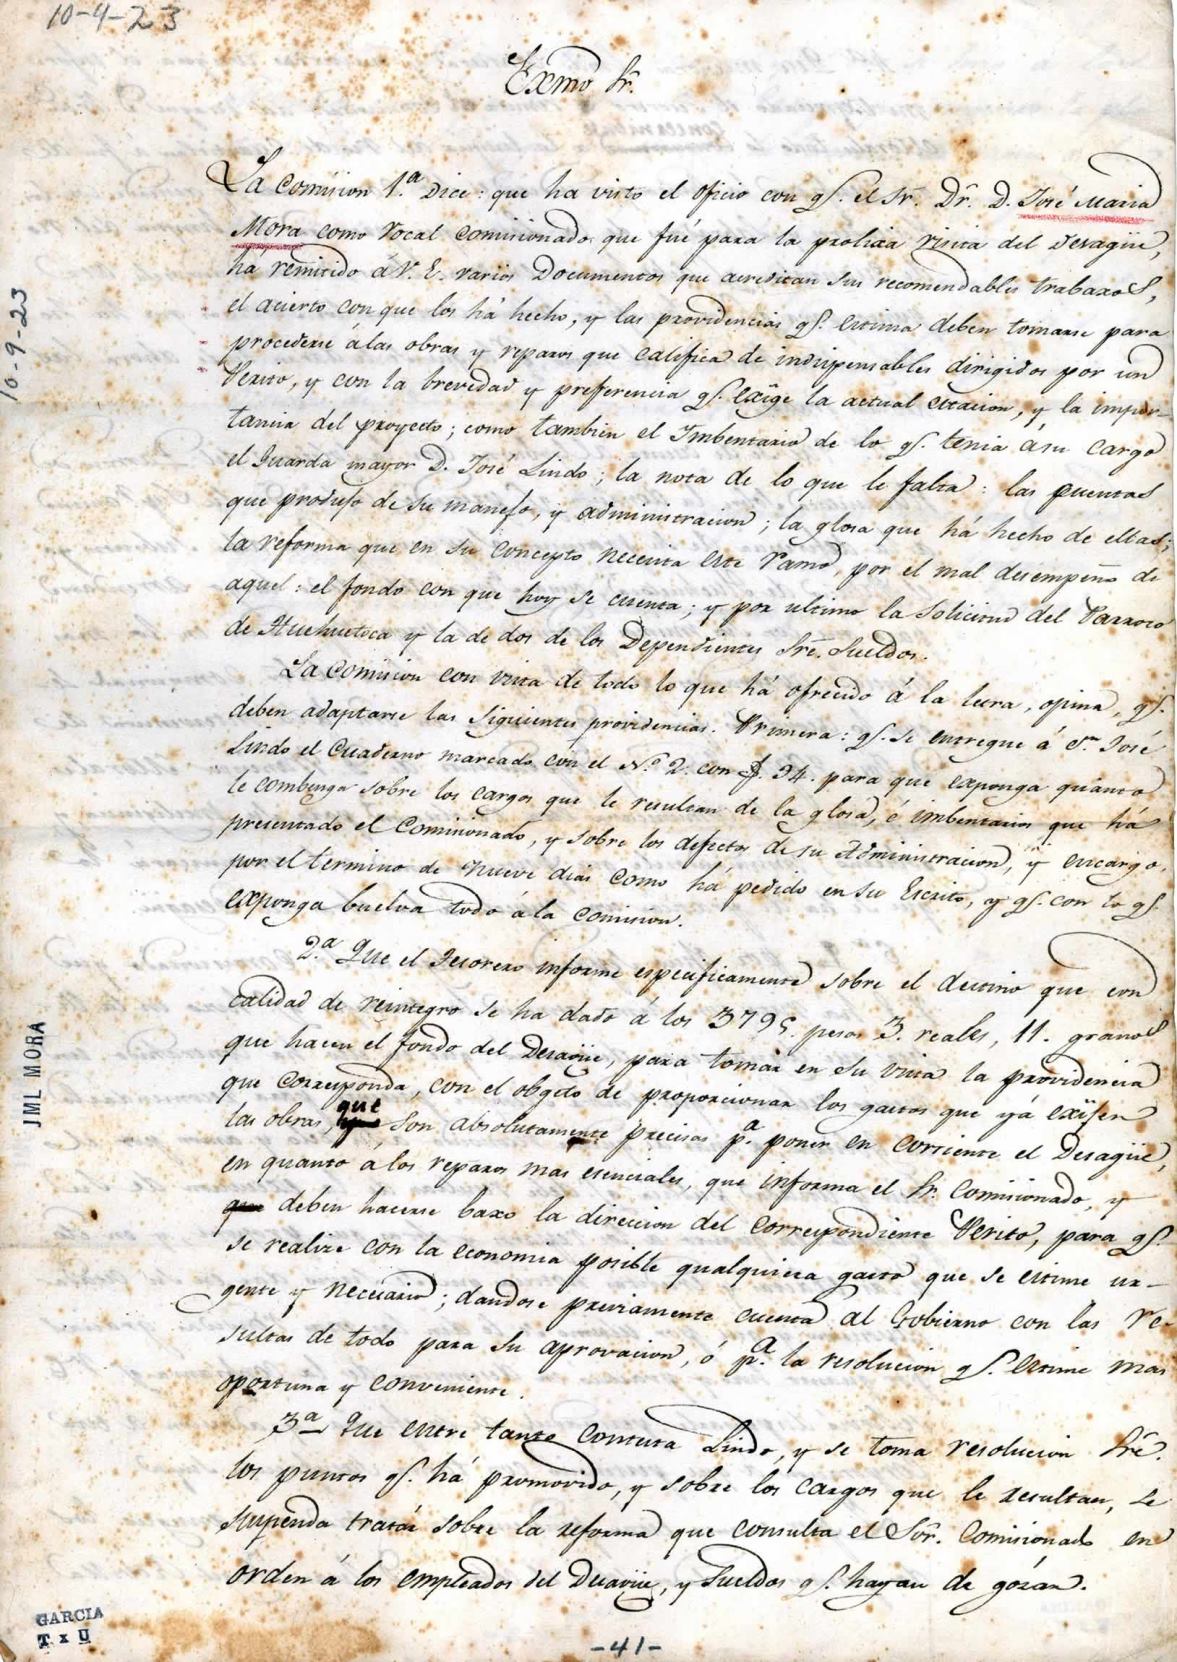 10-4-23
Exmo Sr.
La comision 1.ª Dice: que ha visto el oficio con qe. el Sr. Dr. D. José Maria
Mora como vocal comisionado que fué para la prolixa visita del Desagüe,
há remitido á V. E. varios Documentos que acreditan sus recomendables trabaxos,
el acierto con que los há hecho, y las providencias qe. estima deben tomarse para
procederse álas obras y reparos que califica de indispensables dirigidos por un
Perito, y con la brevedad y preferencia qe. exige la actual estacion, y la impor-
tancia del proyecto; como tambien el Imbentario de lo qe. tenia ásu cargo
el Guarda mayor D. José Lindo; la nota de lo que le falta: las cuentas
que produjo de su manejo, y administracion; la glosa que há hecho de ellas;
la reforma que en su concepto necesita este ramo, por el mal desempeño de
aquel: el fondo con que hoy se cuenta; y por ultimo la solicitud del Parroco
de Huehuetoca y la de dos de los Dependientes sre. sueldos.
La comision con vista de todo lo que há ofrecido á la letra, opina, qe.
deben adaptarse las siguientes providencias. Primera: qe. se entregue á Dn José
Lindo el Cuaderno marcado con el N.º 2. con f. 34. para que exponga quánto
le combenga sobre los cargos que le resultan de la glosa, é imbentarios que há
presentado el Comisionado, y sobre los defectos de su Administracion, y encargo,
por el termino de nueve dias como há pedido en su Escrito, y qe. con lo qe.
exponga buelva todo á la comision.
2.ª Que el Tesorero informe especificamente sobre el destino que con
calidad de reintegro se ha dado á los 3795 pesos 3. reales, 11. granos
que hacen el fondo del Desagüe, para tomar en su vista la providencia
que corresponda, con el obgeto de proporcionar los gastos que yá exijen
las obras, que son absolutamente precisas pª. poner en corriente el Desagüe,
en quanto á los reparos mas esenciales, que informa el Sr. Comisionado, y
que deben hacerse baxo la direccion del correspondiente Perito, para qe.
se realize con la economia posible qualquiera gasto que se estime ur-
gente y necesario; dandose previamente cuenta al Gobierno con las re-
sultas de todo para su aprovacion, ó pª. la resolucion qe. estime mas
oportuna y conveniente.
3ª Que entre tanto contesta Lindo, y se toma resolucion sre.
los puntos qe. há promovido, y sobre los cargos que le resultan, se
suspenda tratar sobre la reforma que consulta el Sor. Comisionado en
orden á los empleados del Desagüe, y sueldos qe. hayan de gozar.
10-9-23
JML MORA
GARCIA
T x U
-41-